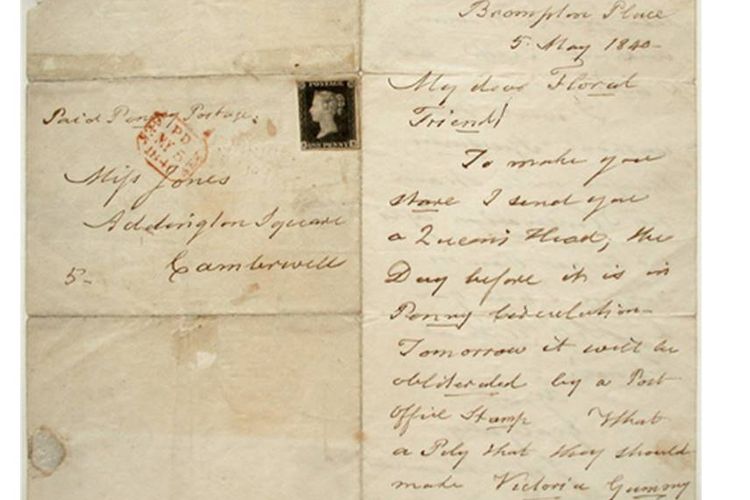 Paid Penny Postage.
POSTAGE
ONE PENNY
PD
MY 5
1840
Miss Jones
Addington Square
Camberwell
5-
Brompton Place
5 May 1840
My dear Floral
Friend!
To make you
stare I send you
a Queen's Head, the
Day before it is in
Penny Circulation-
Tomorrow it will be
obliterated by a Post
Office Stamp What
a Pity that they should
made Victoria Gummy